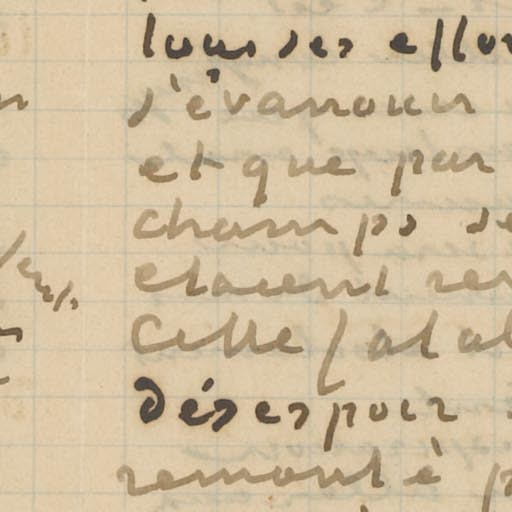 tous ses effor
s'évanouir
et que par
champs de
etaient ren
Cette fatal
Désespoir
remonté p